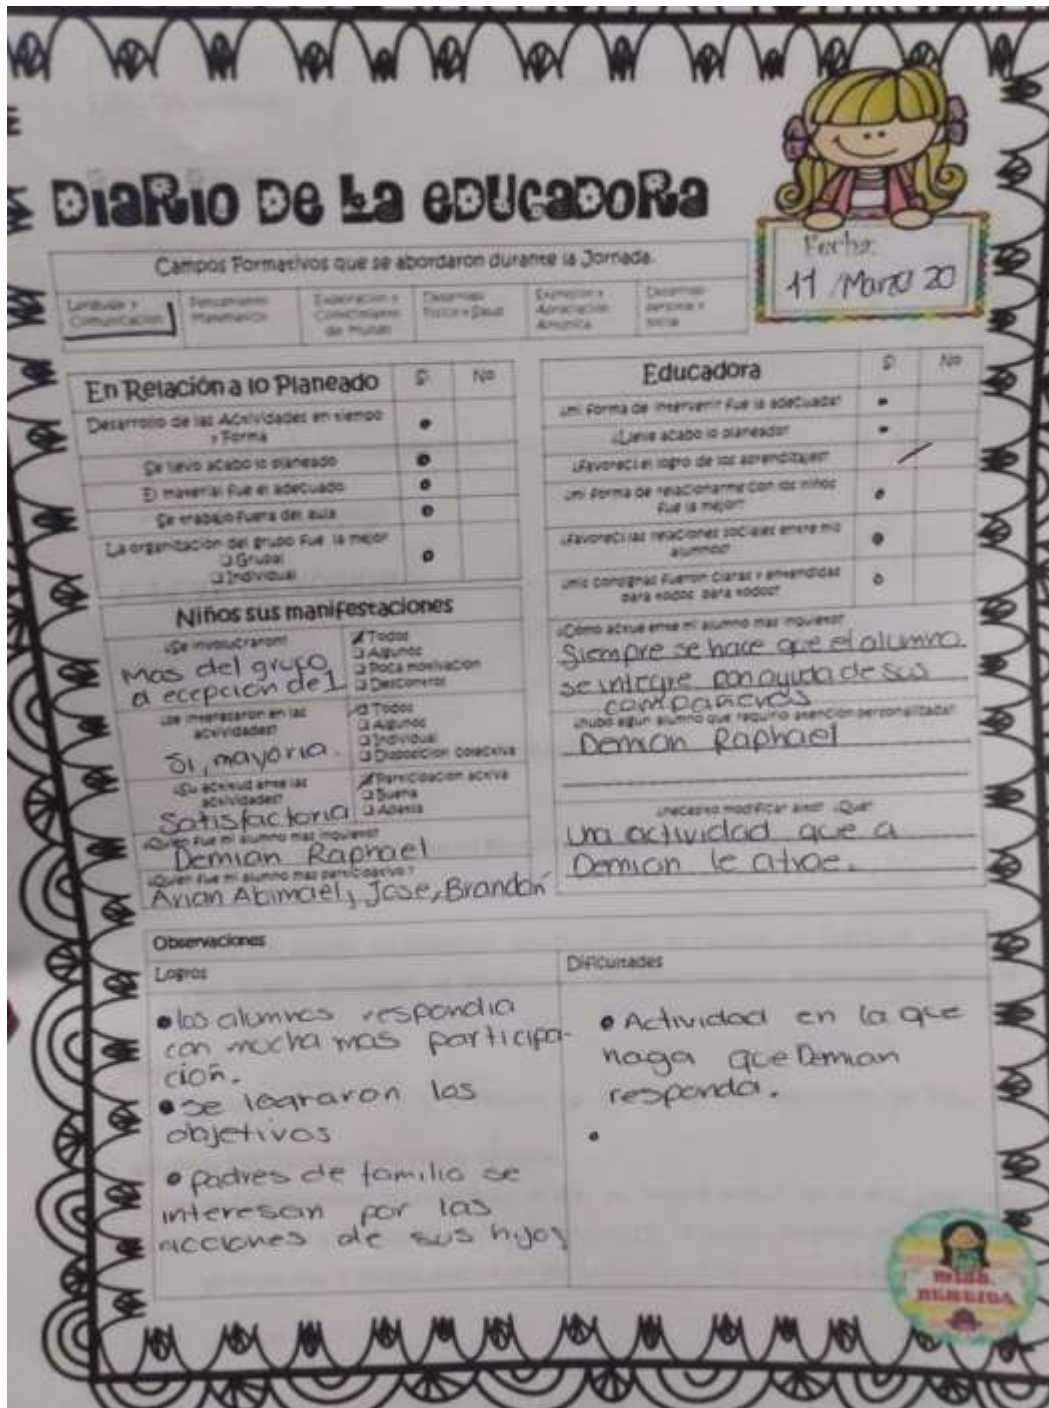 DiaRio De La eDUCaDORa
Fecha:
11 /Marzo 20
Campos Formativos que se abordaron durante la Jornada.
Lenguaje y
Comunicación
Pensamiento
Matemático
Exploración y
Conocimiento
del mundo
Desarrollo
Físico y Salud
Expresión y
Apreciación
Artística
Desarrollo
personal y
social
En Relación a lo Planeado
Si
No
Desarrollo de las Actividades en tiempo
y Forma
Se llevo acabo lo planeado
El material fue el adecuado
Se trabajo fuera del aula
La organización del grupo fue la mejor
Grupal
Individual
Educadora
Si
No
¿mi forma de intervenir fue la adecuada?
¿Lleve acabo lo planeado?
¿Favorecí el logro de los aprendizajes?
¿mi forma de relacionarme con los niños
fue la mejor?
¿Favorecí las relaciones sociales entre mis
alumnos?
¿mis consignas fueron claras y entendidas
para todos para todos?
Niños sus manifestaciones
¿Se involucraron?
Todos
Algunos
Poca motivación
Descontrol
Mas del grupo
a ecepción de 1
¿Se interesaron en las
actividades?
Todos
Algunos
Individual
Disposición colectiva
Si, mayoria.
¿Su actitud ante las
actividades?
Participación activa
Buena
Apatía
Satisfactoria
¿Quién fue mi alumno mas inquieto?
Demian Raphael
¿Quién fue mi alumno mas participativo?
Abimael, Jose, Brandon
¿Cómo actue ante mi alumno mas inquieto?
Siempre se hace que el alumno
se integre con ayuda de sus
compañeros
¿hubo algun alumno que requirio atención personalizada?
Demian Raphael
¿necesito modificar algo? ¿Qué?
Una actividad que a
Demian le atrae.
Observaciones
Logros
Dificultades
los alumnos respondia
con mucha mas participa-
ción.
se lograron los
objetivos
padres de familia se
interesan por las
acciones de sus hijos
Actividad en la que
haga que Demian
responda.
MISS